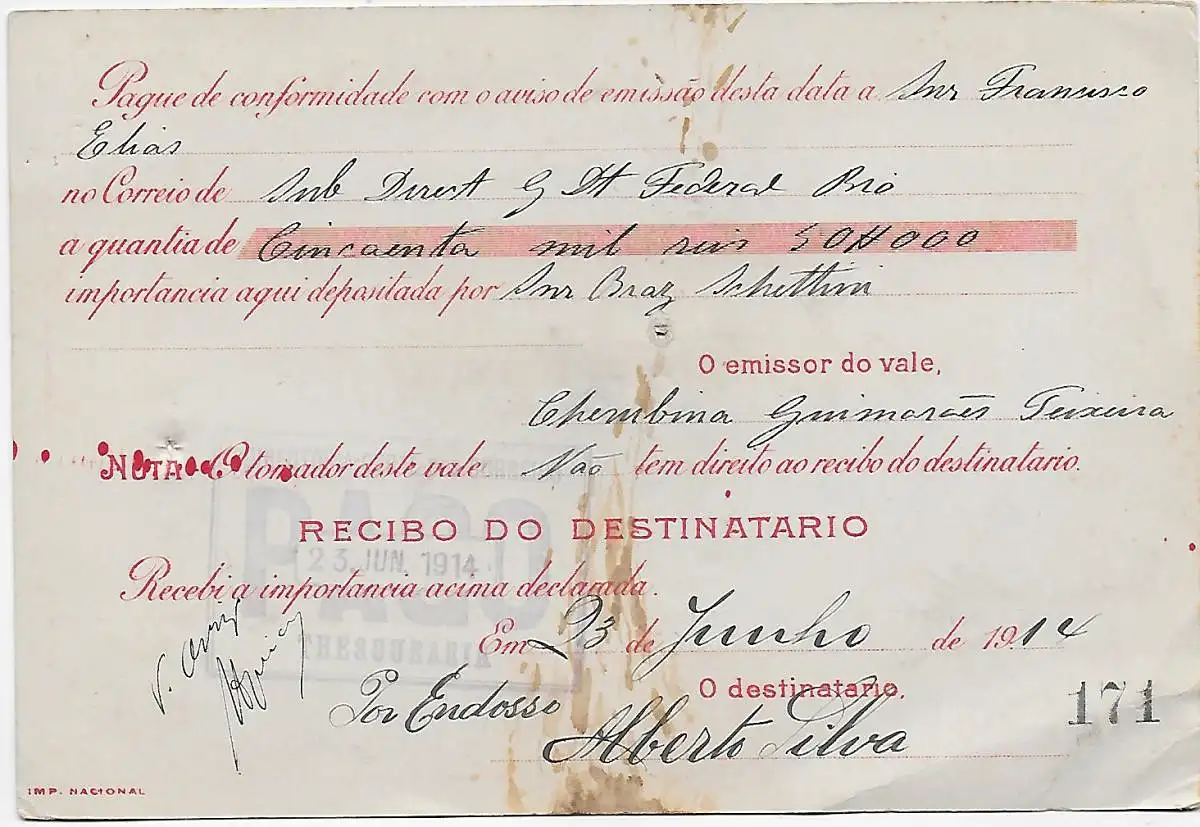 Pague de conformidade com o aviso de emissão desta data a Snr Francisco
Elias
no Correio de Sub Direct G Dt Federal Rio
a quantia de Cincoenta mil reis 50$000
importancia aqui depositada por Snr Braz Schettini
O emissor do vale,
Cherubina Guimarães Teixeira
NOTA O tomador deste vale Não tem direito ao recibo do destinatario.
RECIBO DO DESTINATARIO
PAGO
23 JUN. 1914
Recebi a importancia acima declarada.
THESOURARIA
Em 23 de Junho de 1914
O destinatario,
Por Endosso
Alberto Silva
171
IMP. NACIONAL